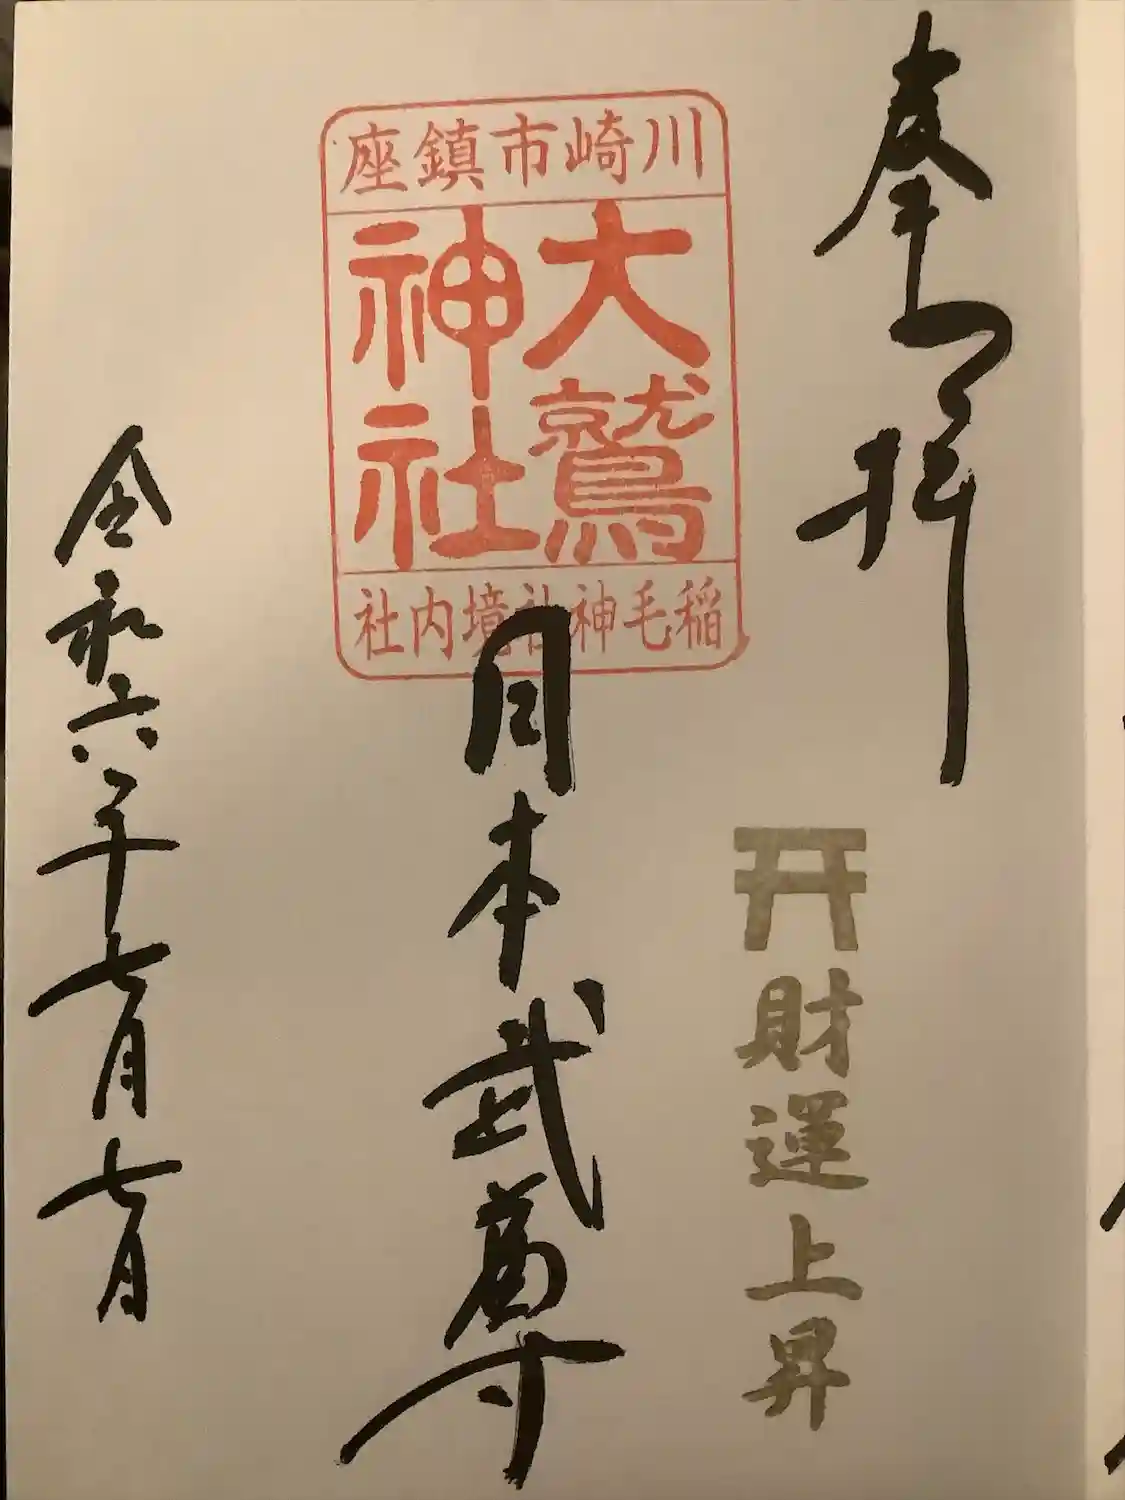 奉拝
財運上昇
川崎市鎮座
大鷲
神社
稲毛神社境内社
日本武尊
令和六年七月七日